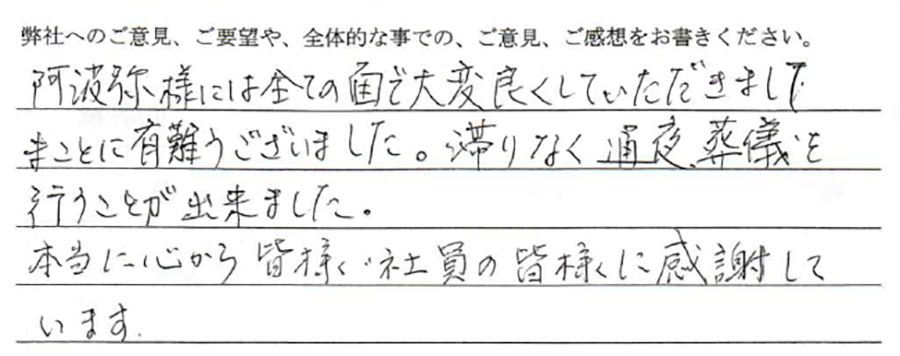 弊社へのご意見、ご要望や、全体的な事での、ご意見、ご感想をお書きください。
阿波弥様には全ての面で大変良くしていただきまして
まことに有難うございました。滞りなく通夜、葬儀を
行うことが出来ました。
本当に心から皆様、社員の皆様に感謝して
います.